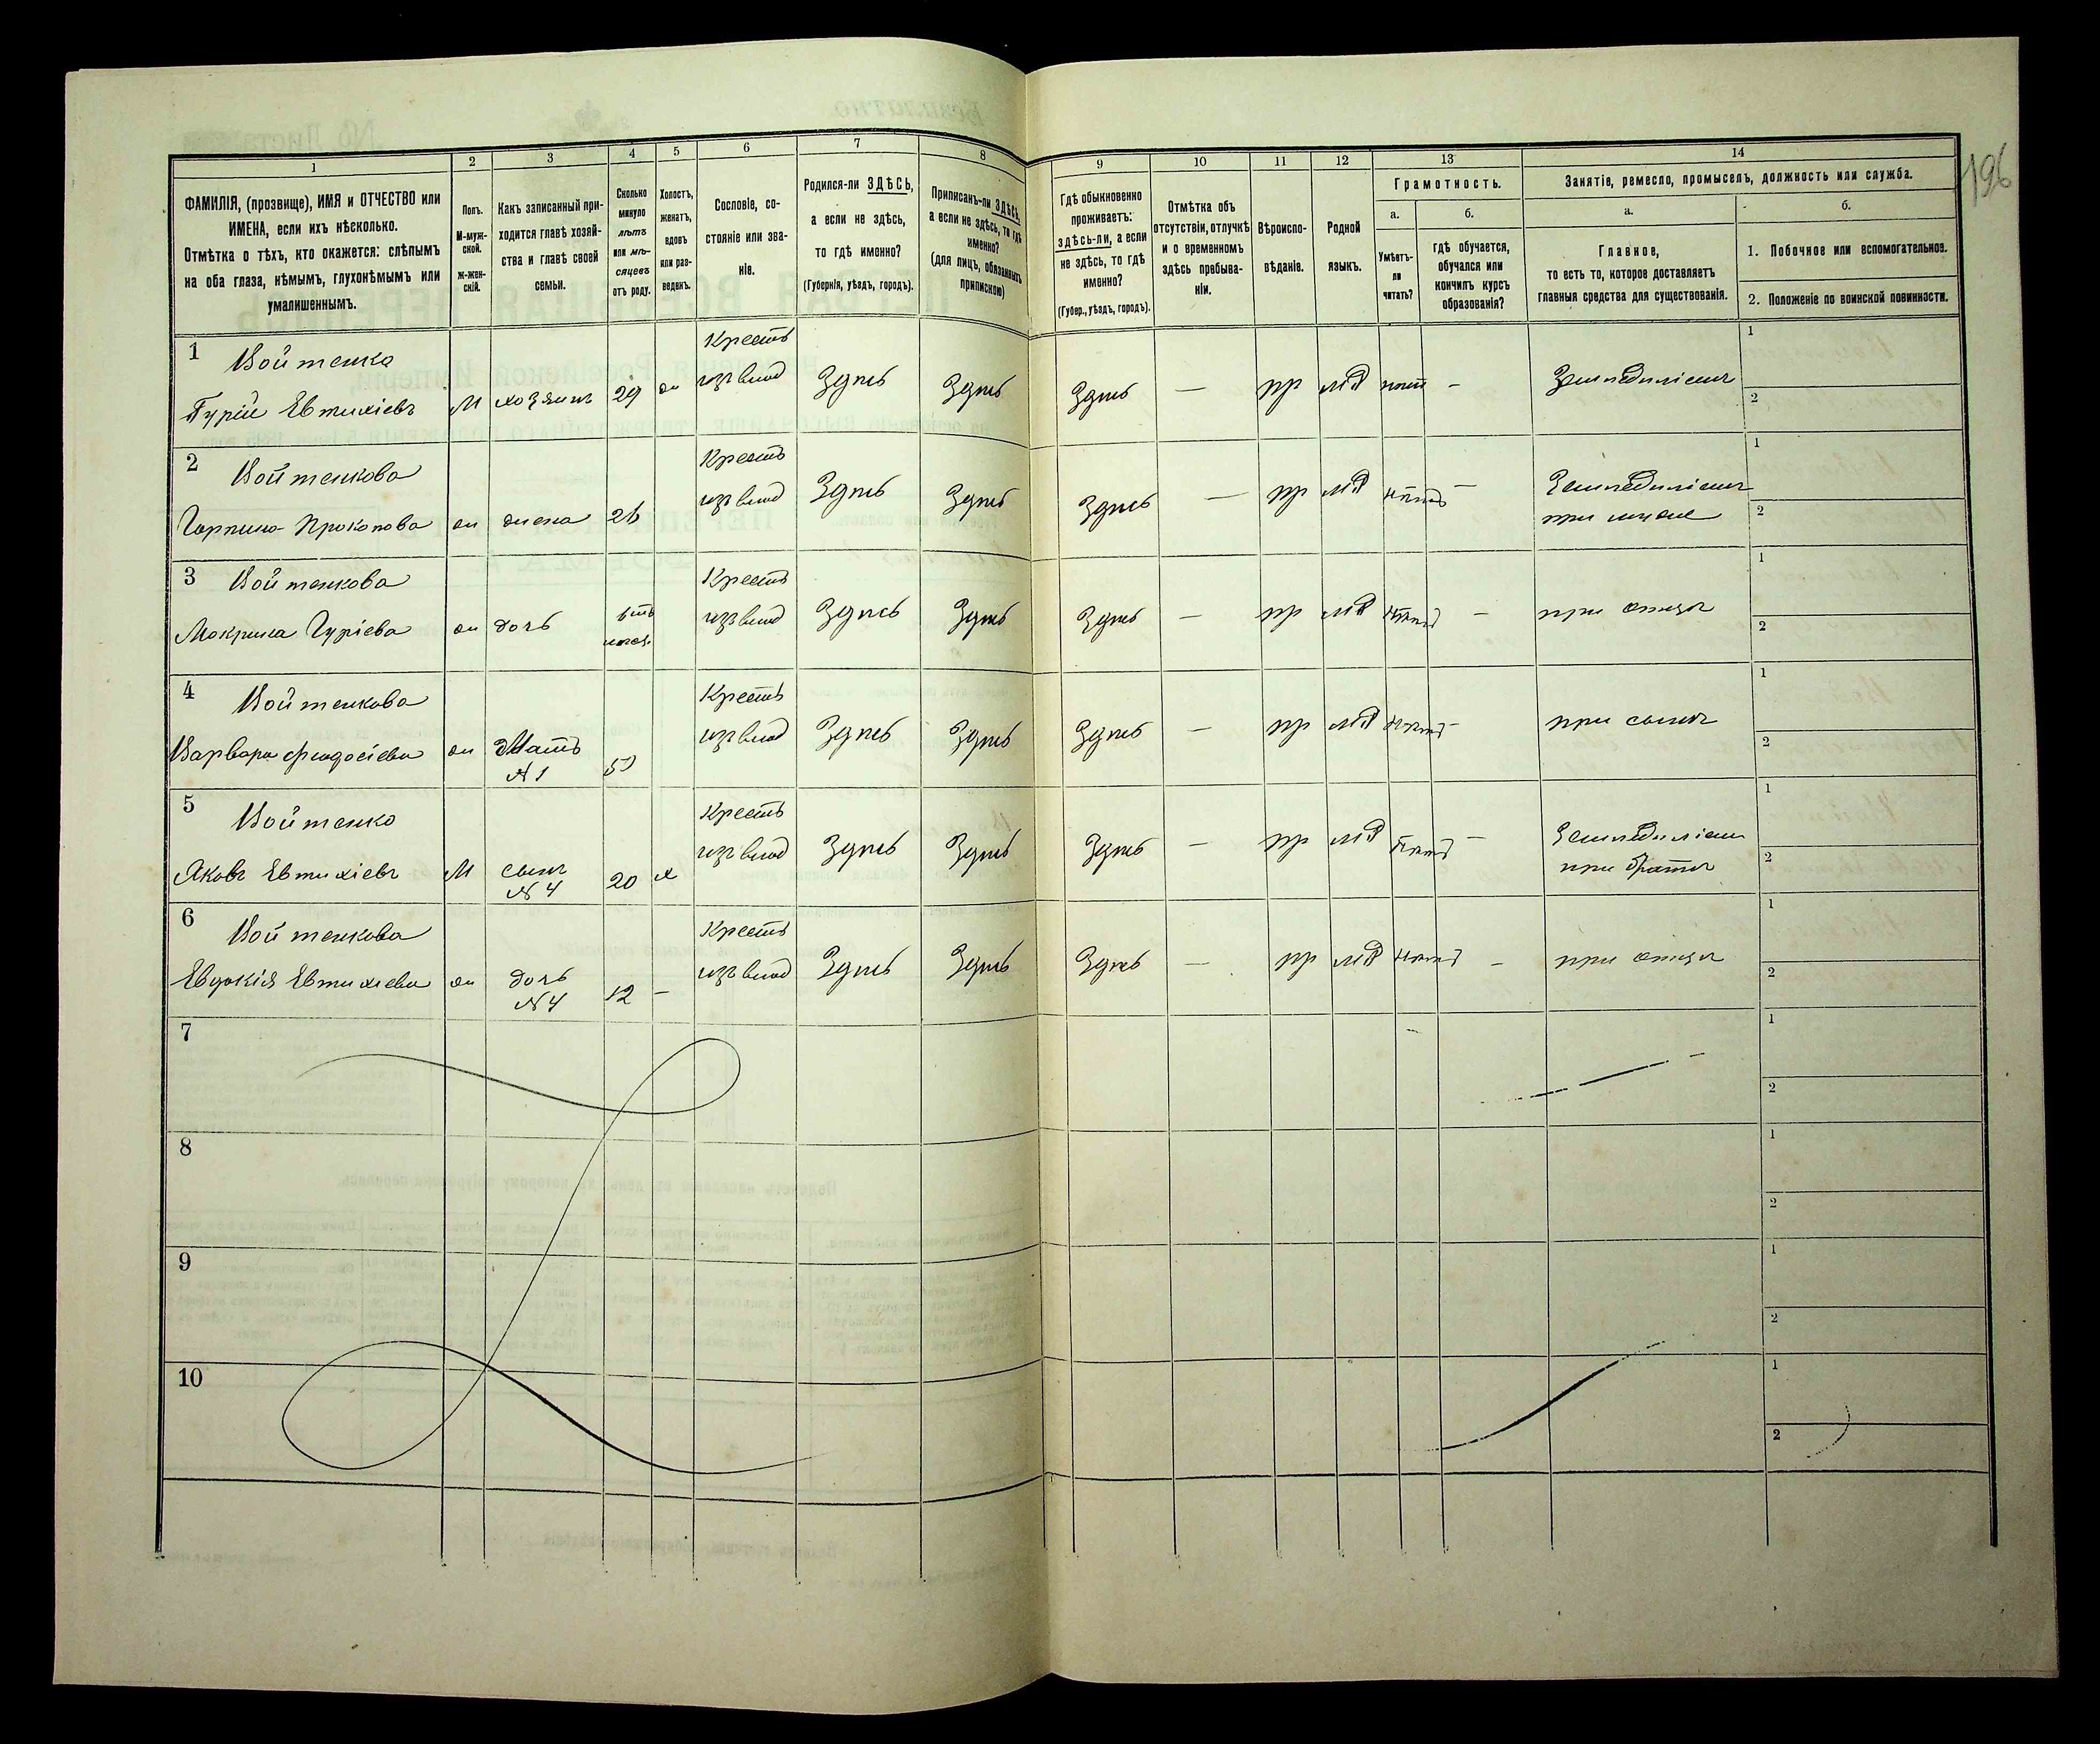 196
1
2
3
4
5
6
7
8
9
10
11
12
13
14
ФАМИЛІЯ, (прозвище), ИМЯ и ОТЧЕСТВО или
ИМЕНА, если ихъ нѣсколько.
Отмѣтка о тѣхъ, кто окажется: слѣпымъ
на оба глаза, нѣмымъ, глухонѣмымъ или
умалишеннымъ.
Полъ.
М-муж-
ской.
Ж-жен-
скій.
Какъ записанный при-
ходится главѣ хозяй-
ства и главѣ своей
семьи.
Сколько
минуло
лѣтъ
или мѣ-
сяцевъ
отъ роду.
Холостъ,
женатъ,
вдовъ
или раз-
веденъ.
Сословіе, со-
стояніе или зва-
ніе.
Родился-ли ЗДѢСЬ,
а если не здѣсь,
то гдѣ именно?
(Губернія, уѣздъ, городъ).
Приписанъ-ли ЗДѢСЬ,
а если не здѣсь, то гдѣ
именно?
(для лицъ, обязанныхъ
припискою)
Гдѣ обыкновенно
проживаетъ:
здѣсь-ли, а если
не здѣсь, то гдѣ
именно?
(Губер., уѣздъ, городъ).
Отмѣтка объ
отсутствіи, отлучкѣ
и о временномъ
здѣсь пребыва-
ніи.
Вѣроиспо-
вѣданіе.
Родной
языкъ.
Грамотность.
а.
б.
Умѣетъ-
ли
читать?
гдѣ обучается,
обучался или
кончилъ курсъ
образованія?
Занятіе, ремесло, промыселъ, должность или служба.
а.
б.
Главное,
то есть то, которое доставляетъ
главныя средства для существованія.
1. Побочное или вспомогательное.
2. Положеніе по воинской повинности.
1 Войтенко
Гурій Евтихіевъ М хозяинъ 29 ж Крестъ изъ влад Здѣсь Здѣсь Здѣсь — пр мл нѣтъ — Земледѣліемъ 1 2
2 Войтенкова
Горпина Прокопова ж жена 26 Крестъ изъ влад Здѣсь Здѣсь Здѣсь — пр мл нѣтъ — Земледѣліемъ при мужѣ 1 2
3 Войтенкова
Мокрина Гуріева ж дочь Крестъ изъ влад Здѣсь Здѣсь Здѣсь — пр мл нѣтъ — при отцѣ 1 2
4 Войтенкова
Варвара Феодосіева ж Мать N 1 Крестъ изъ влад Здѣсь Здѣсь Здѣсь — пр мл нѣтъ — при сынѣ 1 2
5 Войтенко
Яковъ Евтихіевъ М сынъ N 4 20 х Крестъ изъ влад Здѣсь Здѣсь Здѣсь — пр мл нѣтъ — Земледѣліем при братѣ 1 2
6 Войтенкова
Евдокія Евтихіева ж дочь N 4 12 — Крестъ изъ влад Здѣсь Здѣсь Здѣсь — пр мл нѣтъ — при отцѣ 1 2
7 1 2
8 1 2
9 1 2
10 1 2